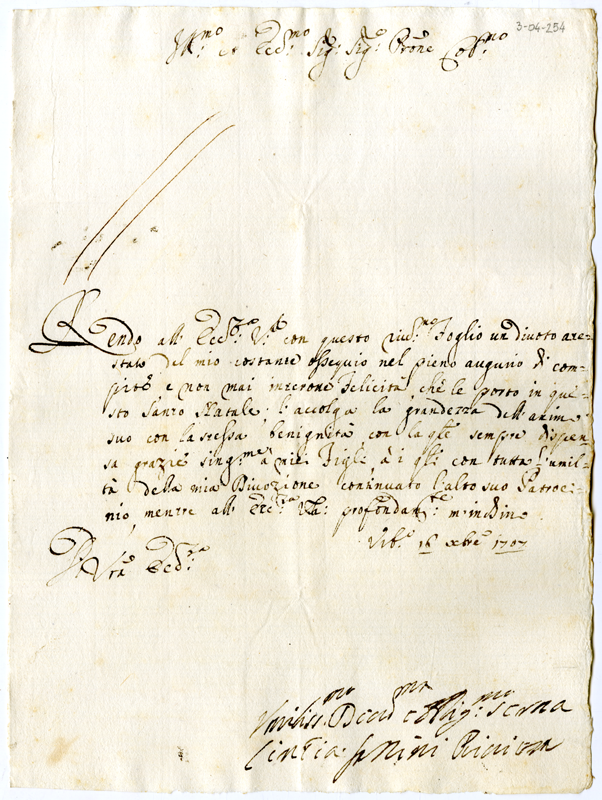 3-04-254
Ill:mo et Ecc:mo Sig:r Sig:r Prõne Col:mo
Rendo all' Ecc:za V:ra con questo riv:mo Foglio un divoto atte=
stato del mio costante ossequio nel pieno augurio di com=
pite e non mai interrotte Felicità, che le porto in que=
sto Santo Natale; l'accolga la grandezza dell'animo
suo con la stessa benignità, con la qle sempre dispen=
sa grazie sing:me a miei Figli, à i qli con tutta l'umil=
tà della mia Divozione continuato l'alto suo Patroci=
nio, mentre all' Ecc:za V:ra profondam:te m'inchino
Vit:o 16 xbre 1707
D: V:ra Ecc:za
Umiliss:ma Dev:ma et Oblig:ma Serva
Cintia